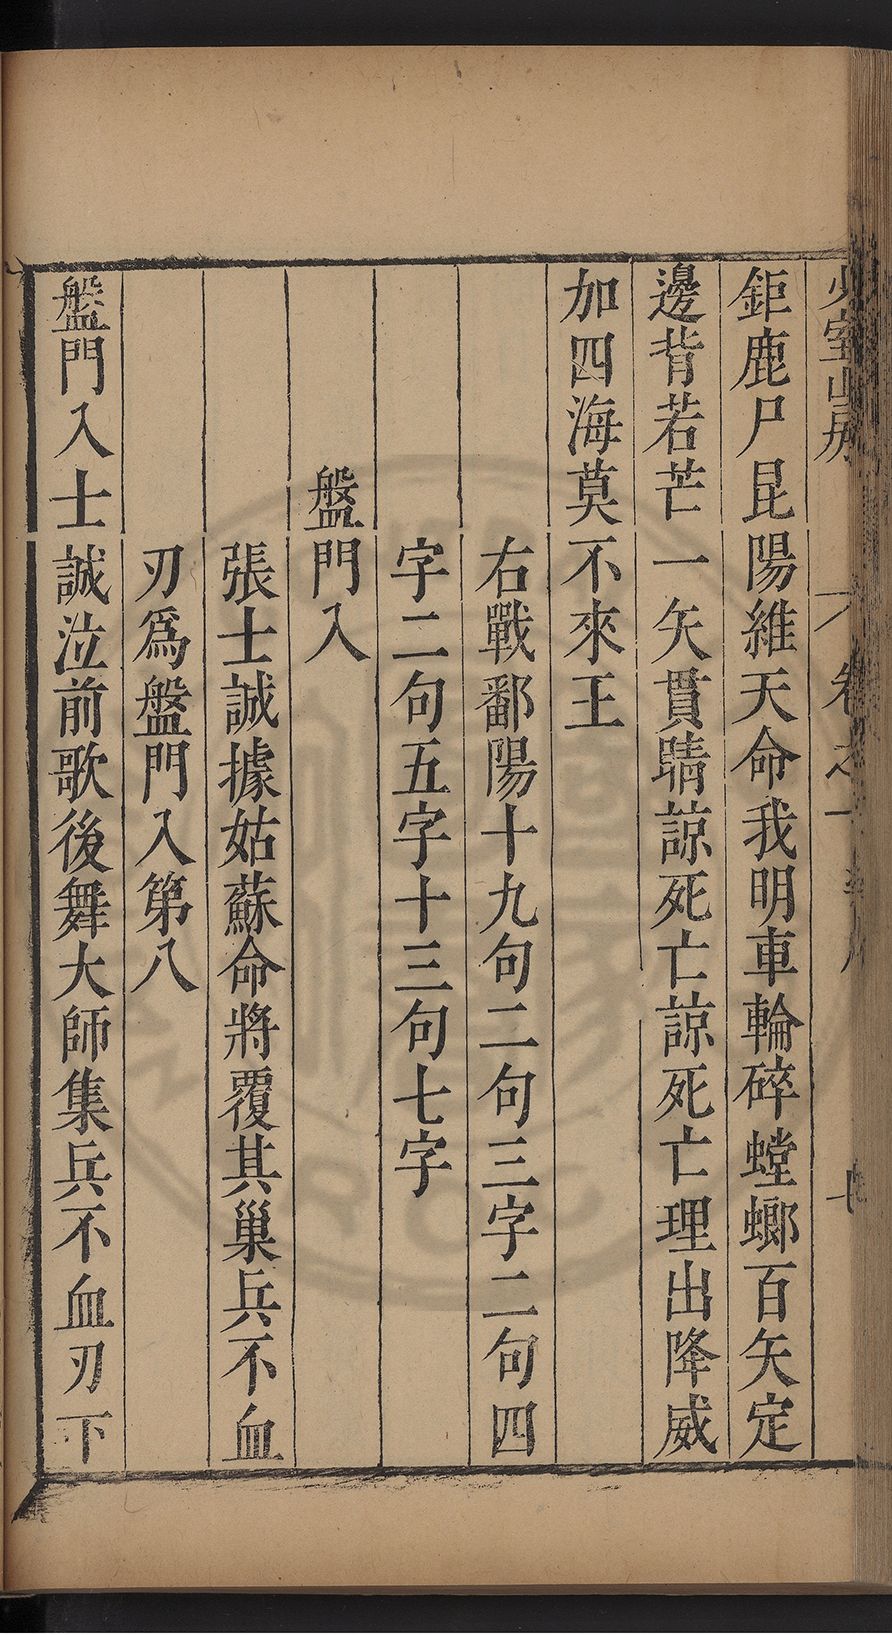 少室山房 卷之一 七
鉅鹿尸昆陽維天命我明車輪碎螳螂百矢定
邊背若芒一矢貫睛諒死亡諒死亡理出降威
加四海莫不來王
右戰鄱陽十九句二句三字二句四
字二句五字十三句七字
盤門入
張士誠據姑蘇命將覆其巢兵不血
刃爲盤門入第八
盤門入士誠泣前歌後舞大師集兵不血刃下